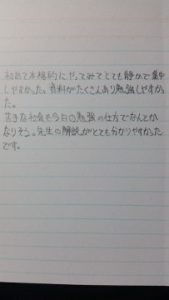 初めて本格的にやってみてとても静かで集中
しやすかった。資料がたくさんあり勉強しやすかっ
た。
苦手な社会も今日の勉強の仕方でなんとか
なりそう。先生の解説がとても分かりやすかった
です。